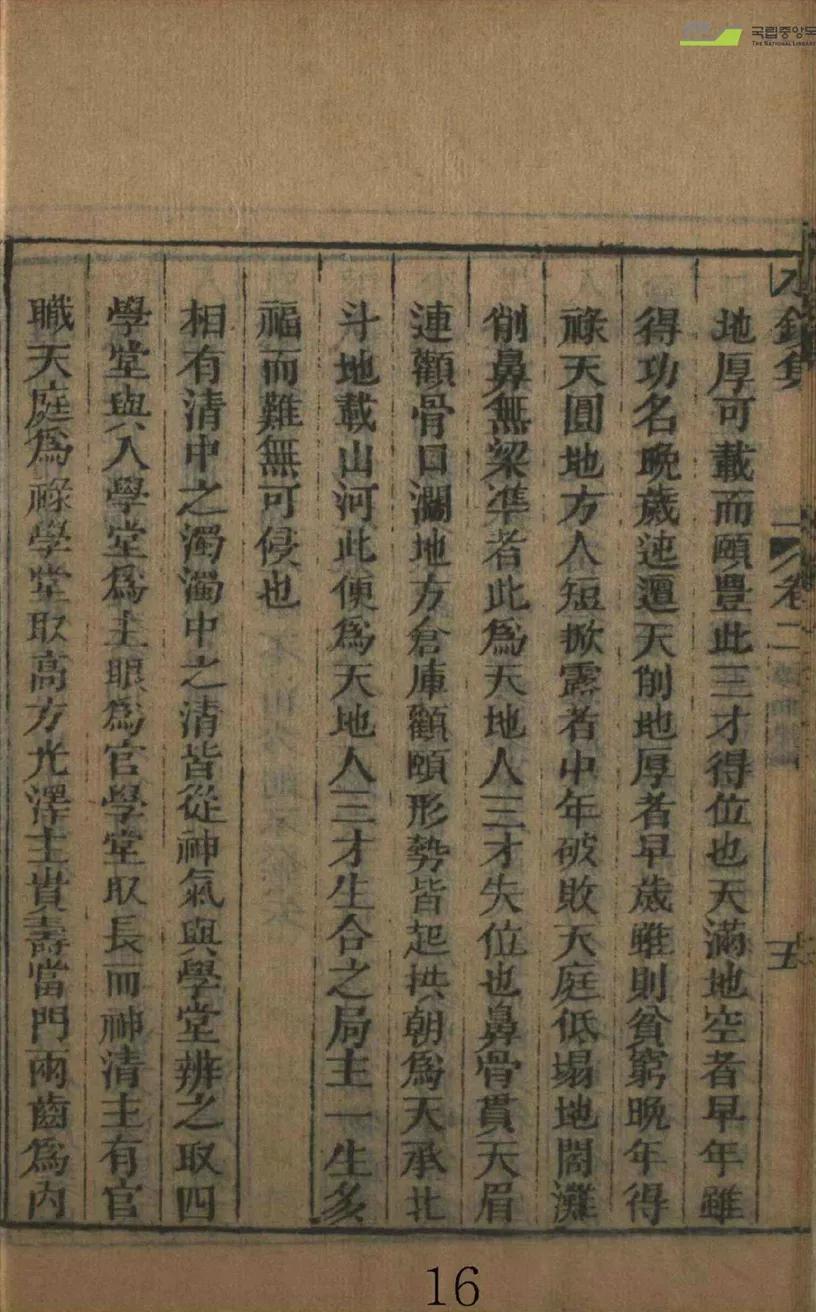 국립중앙도
THE NATIONAL LIBRARY
水鏡集 卷二 五
地厚可載而頤豊此三才得位也天滿地空者早年雖
得功名晩歲迍邅天削地厚者早歲雖則貧窮晩年得
祿天圓地方人短掀露者中年破敗天庭低塌地閣灘
削鼻無梁準者此爲天地人三才失位也鼻骨貫天眉
連顴骨口濶地方倉庫顴頤形勢皆起拱朝爲天承北
斗地載山河此便爲天地人三才生合之局主一生多
福而難無可侵也
相有清中之濁濁中之清皆從神氣與學堂辨之取四
學堂與八學堂爲主眼爲官學堂取長而神清主有官
職天庭爲祿學堂取高方光澤主貴壽當門兩齒爲內
16